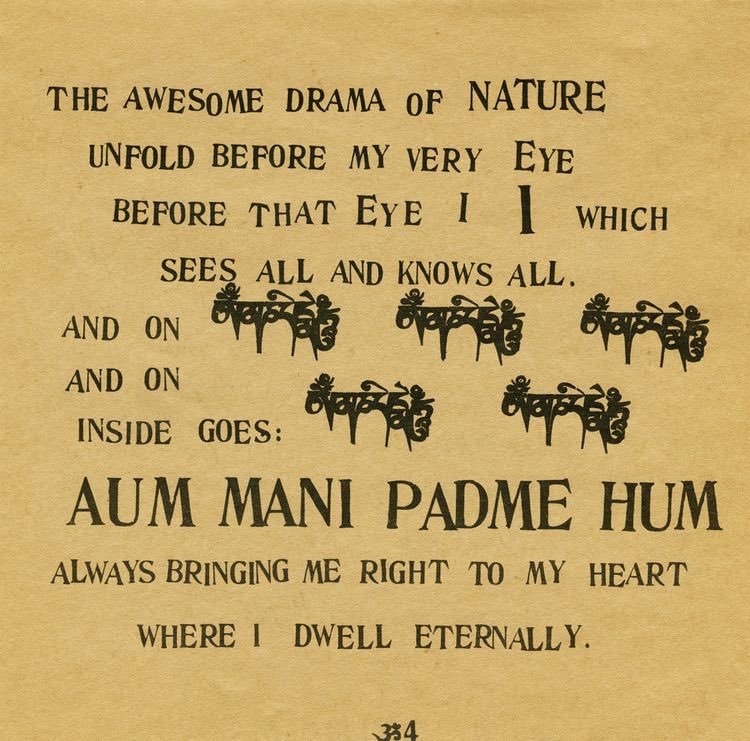 THE AWESOME DRAMA OF NATURE
UNFOLD BEFORE MY VERY EYE
BEFORE THAT EYE I I WHICH
SEES ALL AND KNOWS ALL.
AND ON ༀམཎིཔདྨེཧཱུྃ ༀམཎིཔདྨེཧཱུྃ ༀམཎིཔདྨེཧཱུྃ
AND ON ༀམཎིཔདྨེཧཱུྃ ༀམཎིཔདྨེཧཱུྃ
INSIDE GOES:
AUM MANI PADME HUM
ALWAYS BRINGING ME RIGHT TO MY HEART
WHERE I DWELL ETERNALLY.
ॐ4